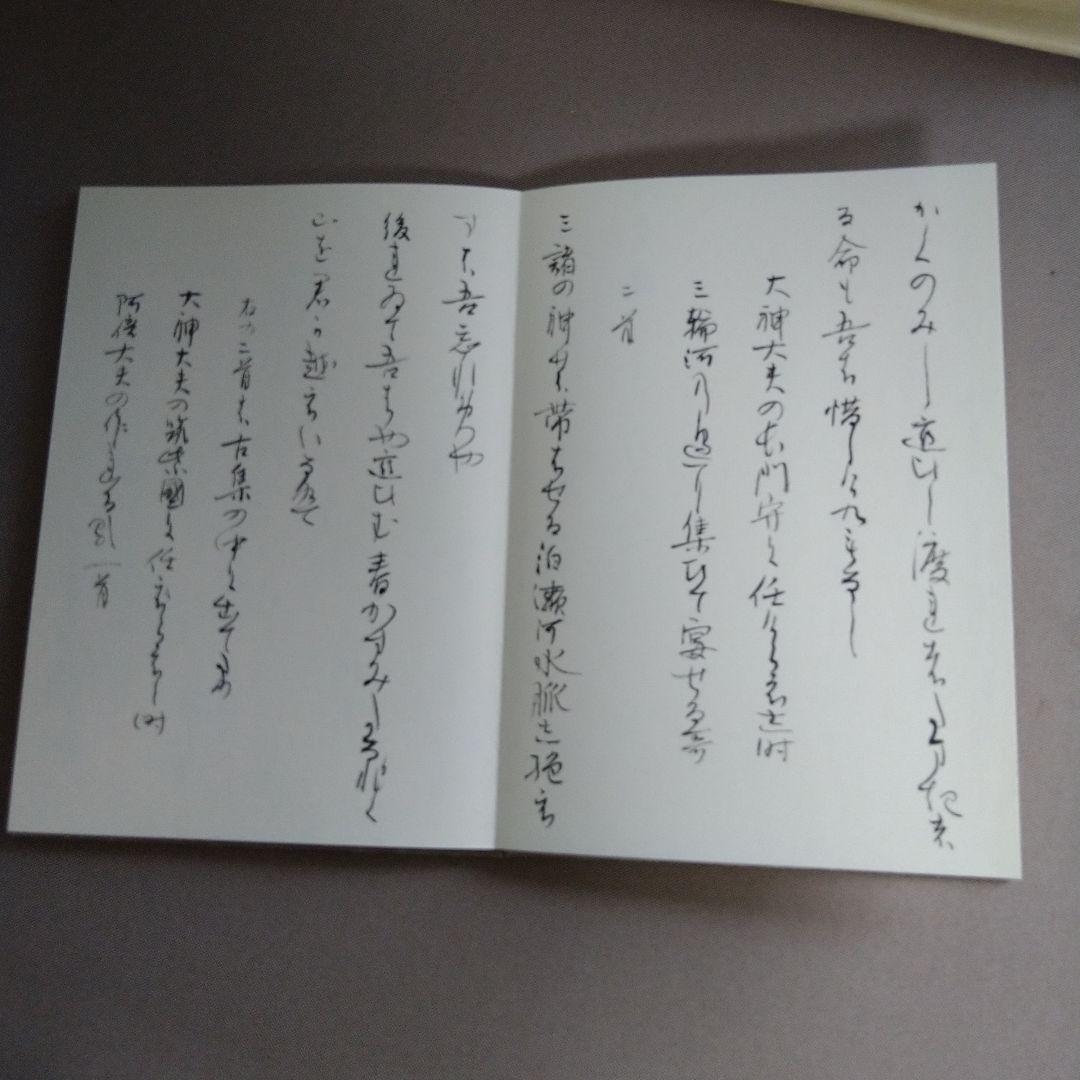 かくのみし戀ひし渡れはたまきは
る命も吾は惜しけくもなし
大神大夫の長門守に任けらえし時
三輪河の邊に集ひて宴せる歌
二首
三諸の神の帯はせる泊瀬河水脈し絶え
すは吾忘れめや
後れゐて吾はや戀ひむ春かすみたなひく
山を君か越えいなは
右の二首は古集の中に出てたり
大神大夫の筑紫國に任けらえし時
阿倍大夫の作れる歌一首